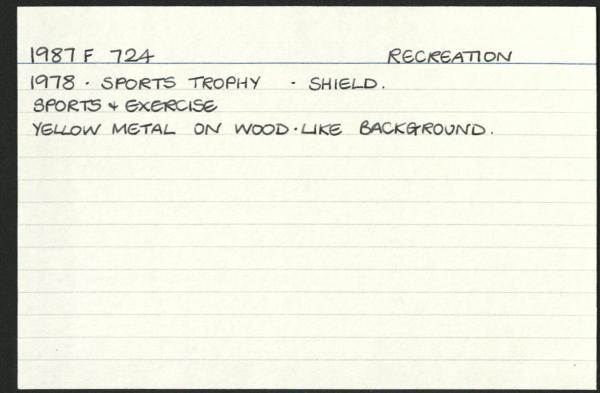 1987 F 724 RECREATION
1978 · SPORTS TROPHY · SHIELD.
SPORTS & EXERCISE
YELLOW METAL ON WOOD·LIKE BACKGROUND.